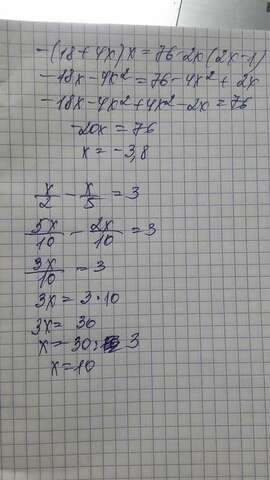 -(18+4x)x=76-2x(2x-1)
-18x-4x²=76-4x²+2x
-18x-4x²+4x²-2x=76
-20x=76
x=-3,8
x/2 - x/5 = 3
5x/10 - 2x/10 = 3
3x/10 = 3
3x = 3·10
3x = 30
x = 30: 3
x=10